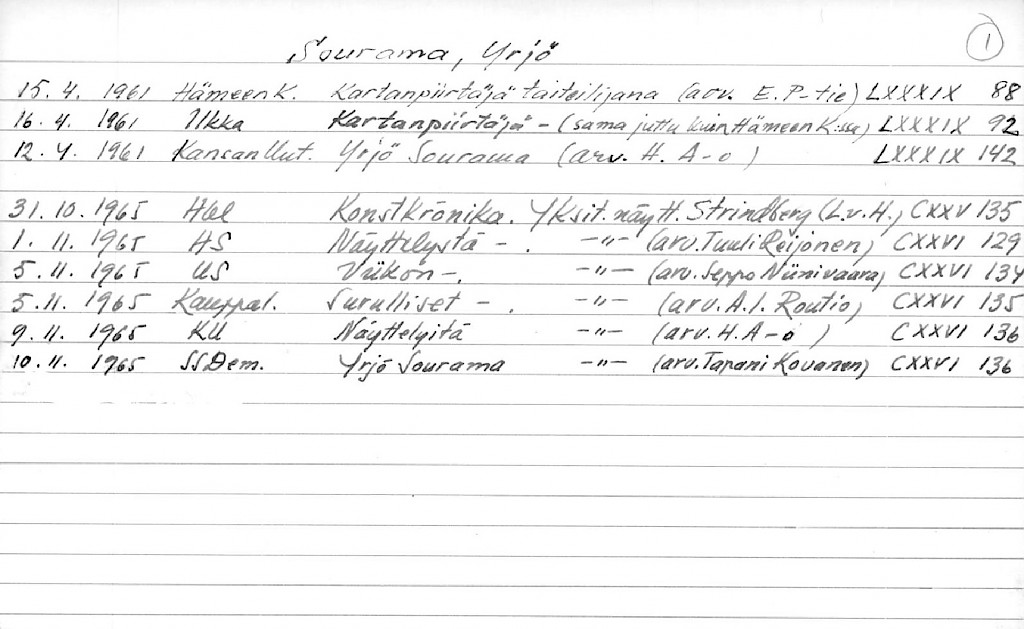 1
Sourama, Yrjö
15. 4. 1961 Hämeen K. Kartanpiirtäjä taiteilijana (arv. E. P-tie) LXXXIX 88
16. 4. 1961 Ilkka Kartanpiirtäjä - (sama juttu kuin Hämeen K:ssa) LXXXIX 92
12. 4. 1961 Kansan Uut. Yrjö Sourama (arv. H. A-o) LXXXIX 142
31. 10. 1965 Hbl Konstkrönika. Yksit. näytt. Strindberg (L.v.H.) CXXV 135
1. 11. 1965 HS Näyttelystä - . -"- (arv. Tuuli Reijonen) CXXVI 129
5. 11. 1965 US Viikon -. -"- (arv. Seppo Niinivaara) CXXVI 134
5. 11. 1965 Kauppal. Surulliset - . -"- (arv. A.I. Routio) CXXVI 135
9. 11. 1965 KU Näyttelyitä -"- (arv. H. A-o) CXXVI 136
10. 11. 1965 SSDem. Yrjö Sourama -"- (arv. Tapani Kovanen) CXXVI 136